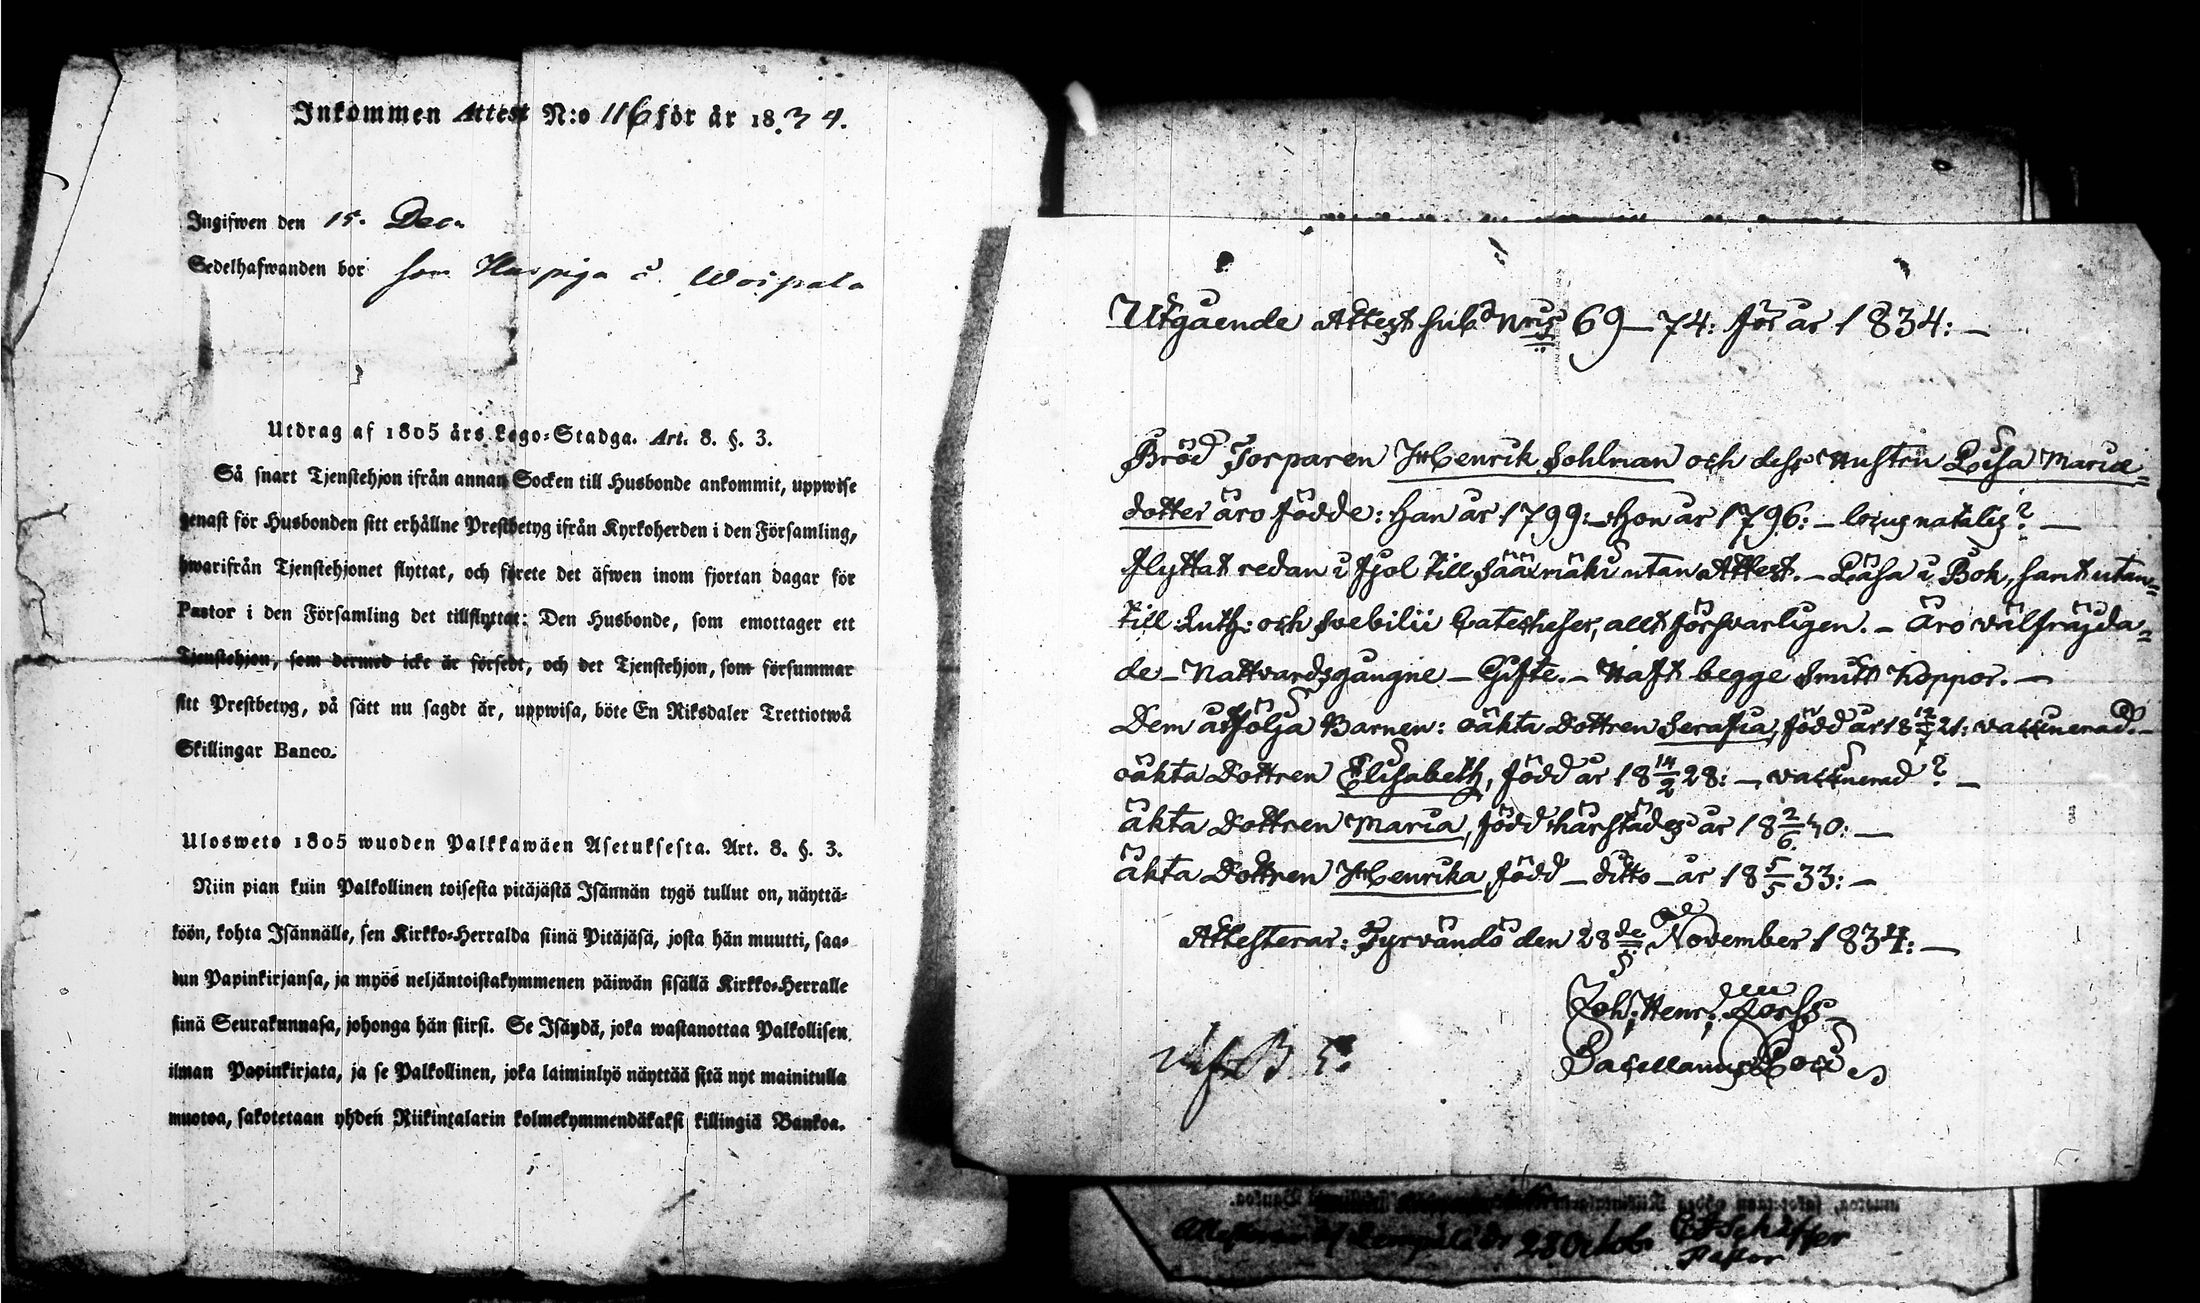 Inkommen Attest N:o 116 för år 1834.
Ingifwen den 15. Dec.
Sedelhafwanden bor som Huspiga i Woipala
Utdrag af 1805 års Lego-Stadga. Art. 8. §. 3.
Så snart Tjenstehjon ifrån annan Socken till Husbonde ankommit, uppwise
genast för Husbonden sitt erhållne Prestbetyg ifrån Kyrkoherden i den Församling,
hwarifrån Tjenstehjonet flyttat, och förete det äfwen inom fjortan dagar för
Pastor i den Församling det tillflyttat: Den Husbonde, som emottager ett
Tjenstehjon, som dermed icke är försedt, och det Tjenstehjon, som försummar
sitt Prestbetyg, på sätt nu sagdt är, uppwisa, böte En Riksdaler Trettiotwå
Skillingar Banco.
Ulosweto 1805 wuoden Palkkawäen Asetuksesta. Art. 8. §. 3.
Niin pian kuin Palkollinen toisesta pitäjästä Isännän tygö tullut on, näyttä-
köön, kohta Isännälle, sen Kirkko-Herralda siinä Pitäjäsä, josta hän muutti, saa-
dun Papinkirjansa, ja myös neljäntoistakymmenen päiwän sisällä Kirkko-Herralle
siinä Seurakunnasa, johonga hän siirsi. Se Isändä, joka wastanottaa Palkollisen
ilman Papinkirjata, ja se Palkollinen, joka laiminlyö näyttää sitä nyt mainitulla
muotoa, sakotetaan yhden Riikintalarin kolmekymmendäkaksi killingiä Bankoa.
Utgående Attest sub Nris 69-74: för år 1834:-
Bröd Torparen Henrik Sohlman och dess Hustru Lisa Maria
dotter äro födde: han år 1799:- hon år 1796:- locus natalis? -
flyttat redan i fjol till Sääxmäki utan Attest. - Läsa i Bok, samt utan-
till: Luth: och Svebilii Catecheser, allt försvarligen. - Äro välfräjda-
de - Nattvardsgångne - Gifte. - Haft begge Smitt Koppor. -
Dem åtfölja Barnen: oäkta Dottren Serafia, född år 18 12/7 21: vaccinerad. -
oäkta Dottren Elisabeth, född år 18 14/2 28: - vaccinerad? -
äkta Dottren Maria, född härstädes år 18 2/6 30: -
äkta Dottren Henrika, född - ditto - år 18 5/5 33: -
Attesterar: Tyrvändö den 28de November 1834: -
Joh: Henr:
Sacellanus Loci
muotoa, sakotetaan yhden Riikintalarin Bankoa.
Attesterar 28 Octob. Schäffer
Pastor